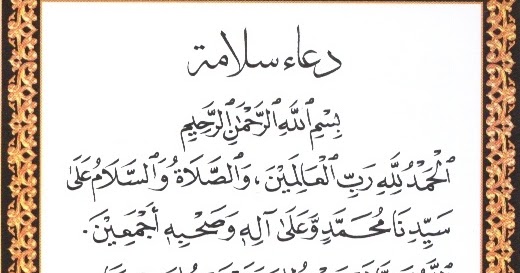 دعاء سلامة
بِسْمِ ٱللَّهِ ٱلرَّحْمَٰنِ ٱلرَّحِيمِ
ٱلْحَمْدُ لِلَّهِ رَبِّ ٱلْعَالَمِيْنَ، وَٱلصَّلَاةُ وَٱلسَّلَامُ عَلَىٰ
سَيِّدِنَا مُحَمَّدٍ وَّعَلَىٰ آلِهِ وَصَحْبِهِ أَجْمَعِيْنَ.